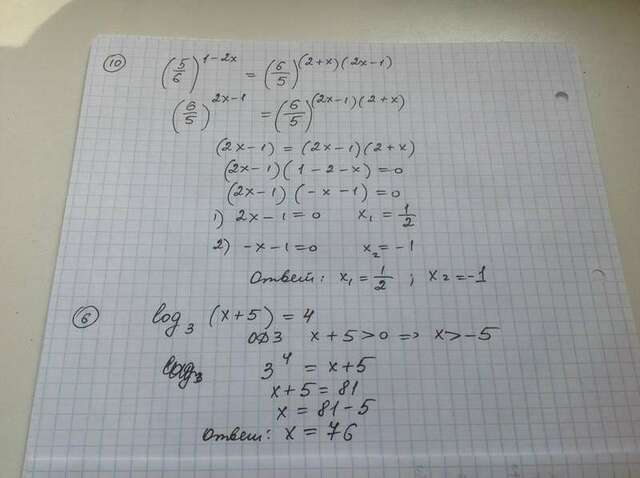 10 (5/6)^(1-2x) = (6/5)^((2+x)(2x-1))
(6/5)^(2x-1) = (6/5)^((2x-1)(2+x))
(2x-1) = (2x-1)(2+x)
(2x-1)(1-2-x)=0
(2x-1)(-x-1)=0
1) 2x-1=0 x₁ = 1/2
2) -x-1=0 x₂=-1
Ответ: x₁ = 1/2 ; x₂=-1
6 log₃ (x+5) = 4
ОДЗ x+5>0 => x>-5
3⁴ = x+5
x+5 = 81
x = 81-5
Ответ: x = 76